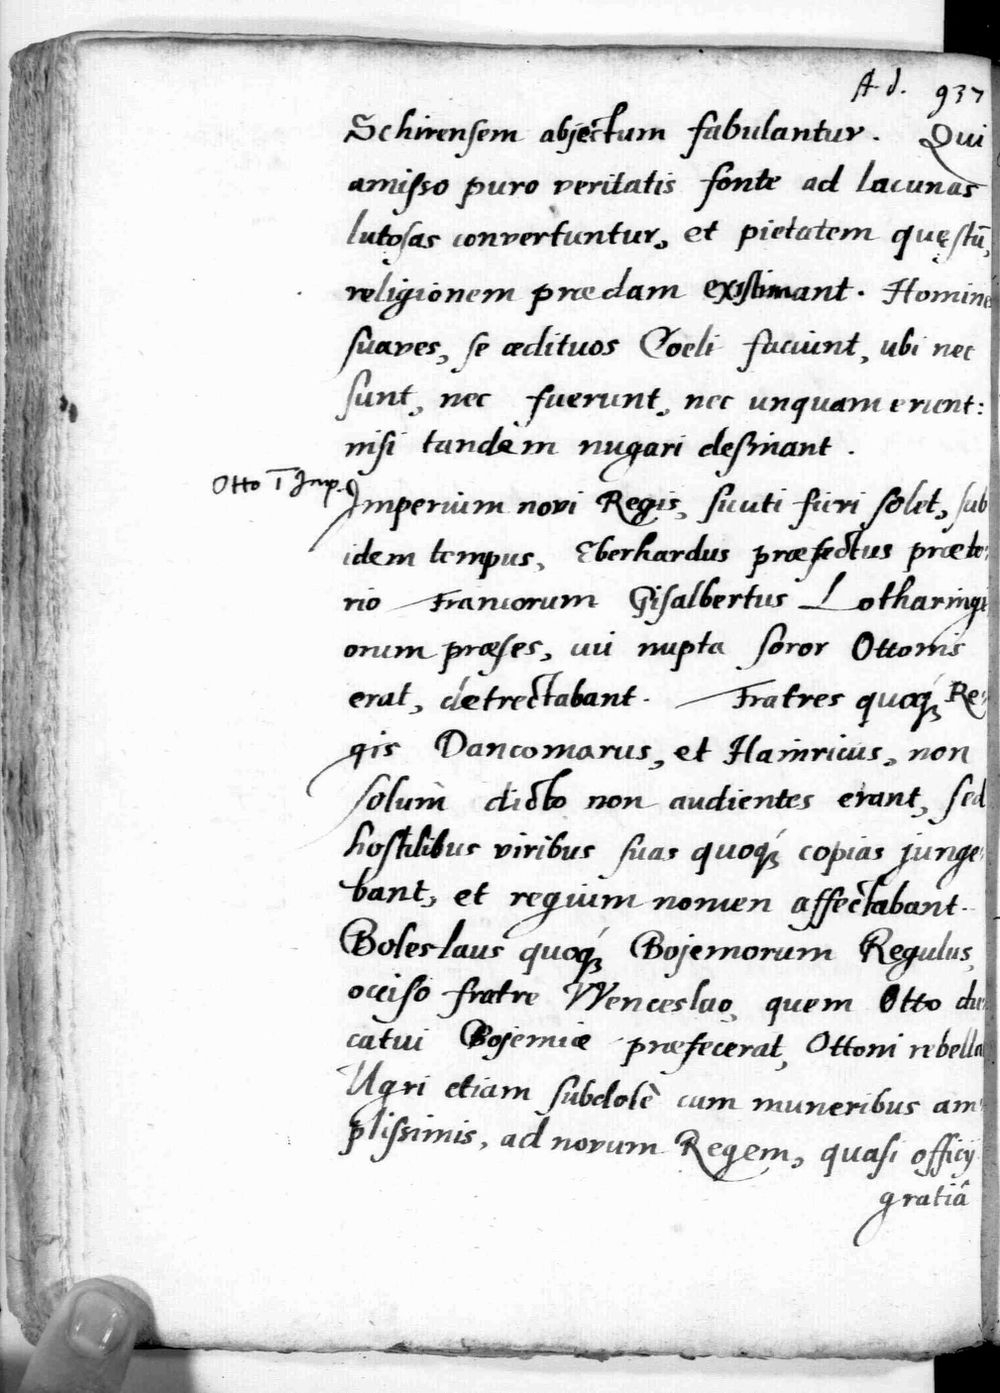 A d. 937
Schirensem abjectum fabulantur. Qui
amisso puro veritatis fonte ad lacunas
lutosas convertuntur, et pietatem quęstū,
religionem prædam existimant. Homine
suaves, se ædituos Coeli faciunt, ubi nec
sunt, nec fuerunt, nec unquam erunt:
nisi tandem nugari desinant.
Otto I Imp.
Imperium novi Regis, sicuti fieri solet, sub
idem tempus, Eberhardus præfectus præto-
rio Francorum Gisalbertus Lotharingi
orum præses, cui nupta soror Ottonis
erat, detrectabant. Fratres quoq́ꝫ Re-
gis Dancomarus, et Hainricus, non
solum dicto non audientes erant, sed
hostilibus viribus suas quoq́ꝫ copias junge-
bant, et regium nomen affectabant.
Boleslaus quoq́ꝫ Bojemorum Regulus,
occiso fratre Wenceslao, quem Otto du-
catui Bojemiæ præfecerat, Ottoni rebella
Ugri etiam subdolè cum muneribus am-
plissimis, ad novum Regem, quasi officij
gratiâ